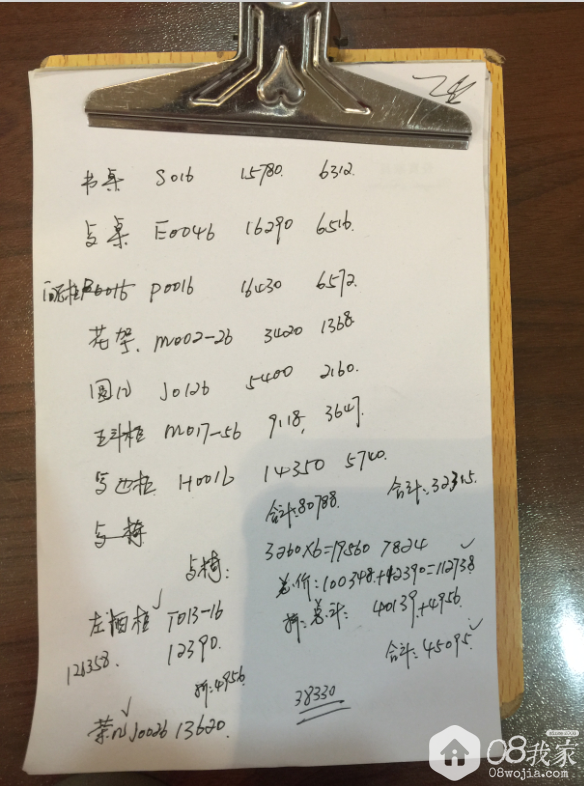 书桌 S016 15780. 6312.
与桌 E0046 16290 6516.
P0016 16430 6572.
花架. M002-26 3420 1368.
圆几 J0126 5400 2160.
五斗柜 M017-56 9118. 3647.
与边柜 H0016 14350 5740.
合计:80788 合计:32315.
与椅
与椅: 3260×6=19560 7824
总价:100348+12390=112738
左酒柜 T013-16 折总计: 40139+4956
126358. 12390. 合计:45095
折:4956
38330
茶几 J0026 13620.
08我家
08wojia.com